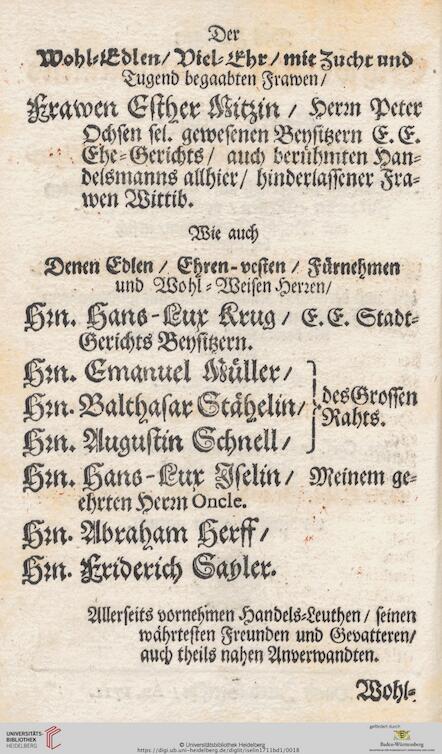 Der
Wohl-Edlen/ Viel-Ehr/ mit Zucht und
Tugend begaabten Frawen/
Frawen Esther Mitzin / Herrn Peter
Ochsen sel. gewesenen Beysitzern E. E.
Ehe-Gerichts/ auch berühmten Han-
delsmanns allhier/ hinderlassener Fra-
wen Wittib.
Wie auch
Denen Edlen / Ehren-vesten / Fürnehmen
und Wohl-Weisen Herren/
Hrn. Hans-Lux Krug / E. E. Stadt-
Gerichts Beysitzern.
Hrn. Emanuel Müller /
Hrn. Balthasar Stähelin/
des Grossen
Rahts.
Hrn. Augustin Schnell /
Hrn. Hans-Lux Iselin / Meinem ge-
ehrten Herrn Oncle.
Hrn. Abraham Herff /
Hrn. Friderich Sayler.
Allerseits vornehmen Handels-Leuthen/ seinen
währtesten Freunden und Gevatteren/
auch theils nahen Anverwandten.
Wohl-
UNIVERSITÄTS-
BIBLIOTHEK
HEIDELBERG
© Universitätsbibliothek Heidelberg
https://digi.ub.uni-heidelberg.de/diglit/iselin1711bd1/0018
gefördert durch
Baden-Württemberg